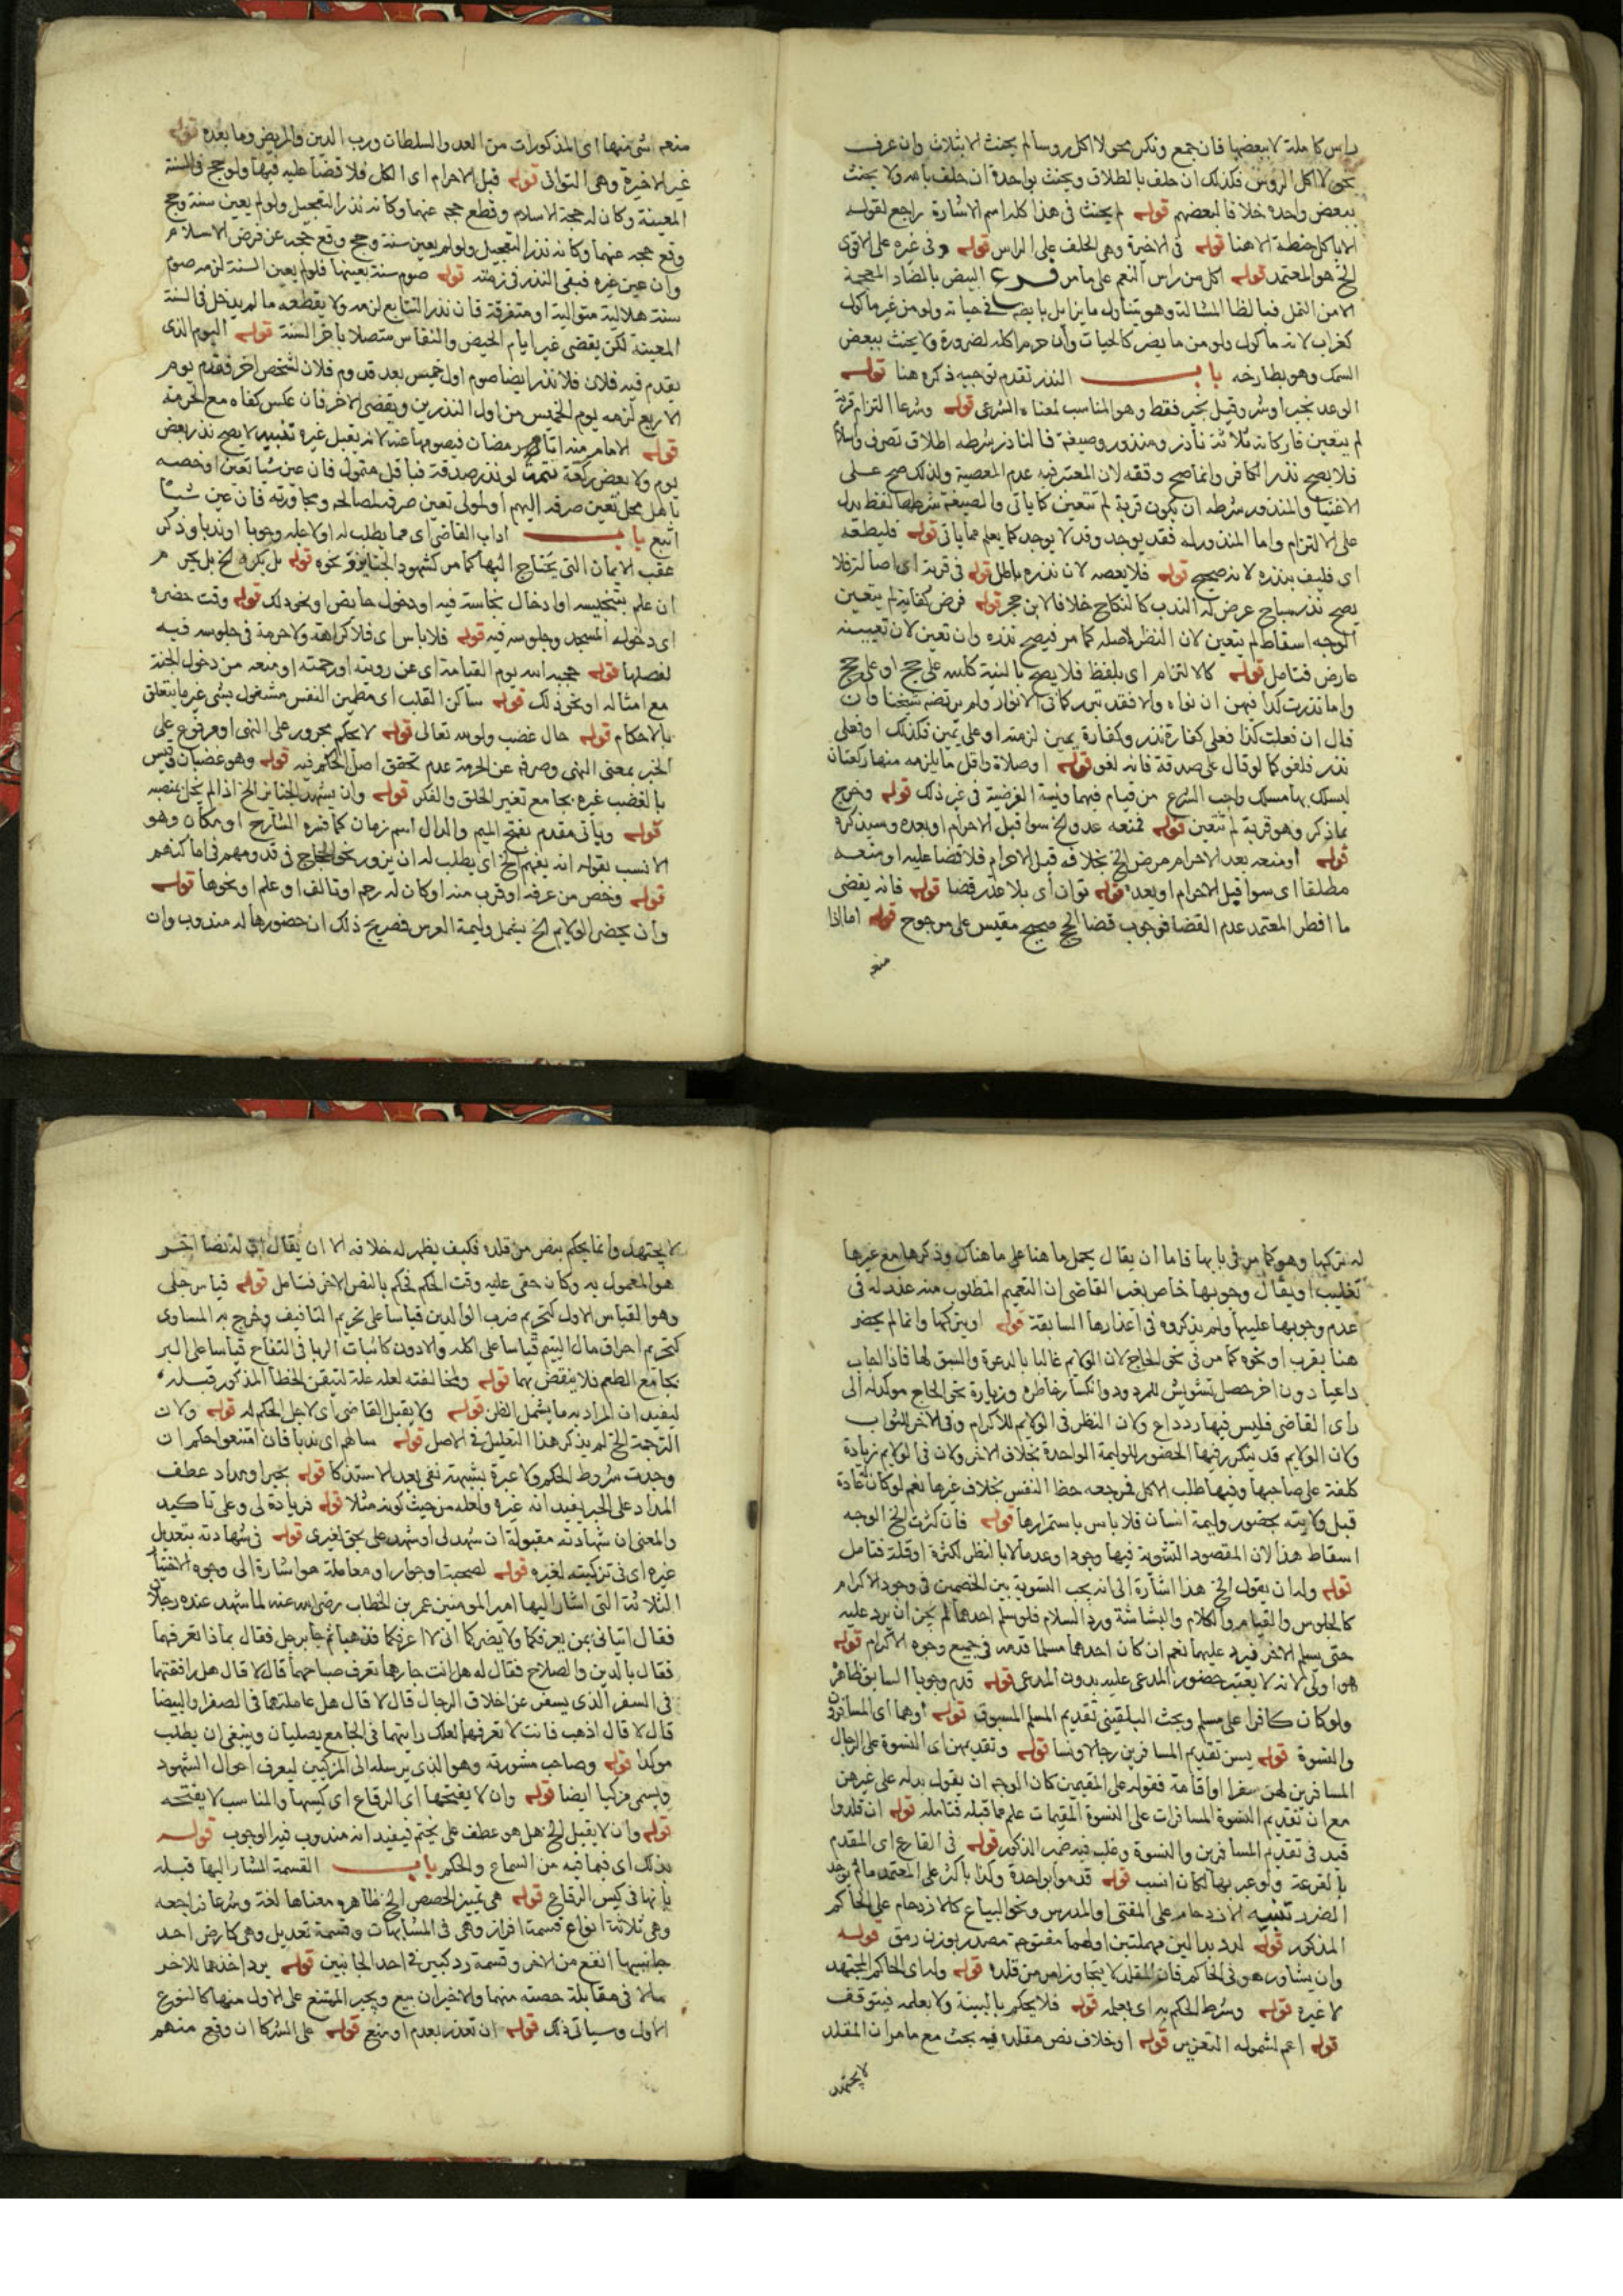 راس كاملة لا ببعضها فان جمع ونكر بحو لا اكل روسا لم يحنث الا بثلاث وان عرف
بحو لا اكل الروس فكذلك ان حلف بالطلاق ويحنث بواحدة ان حلف بالله ولا يحنث
ببعض واحده خلافا لبعضهم قوله لم يحنث فى هذا كله اسم الاشارة راجع لقوله
الا باكل حنطة الا هنا قوله فى الاخيرة وهى الحلف على الراس قوله وفى غيره على الاقوى
الخ هو المعتمد قوله اكل من راس النعم على ما مر فرع البيض بالضاد المعجمة
الا من النمل فبالظا المشالة وهو يتناول ما يزايل بايضه فى حياته ولو من غير ماكول
كغراب لانه ماكول ولو من ما يضر كالحيات وان حرم اكله لضرورة ولا يحنث ببعض
السمك وهو بطارخه باب النذر تقدم توجيه ذكره هنا قوله
الوعد بخير او شر وقيل بخير فقط وهو المناسب لمعناه الشرعى قوله وشرعا التزام قربة
لم يتعين فاركانه ثلاثة ناذر ومنذور وصيغة فالناذر شرطه اطلاق تصرف واسلام
فلا يصح نذر الكافر وانما صح وقفه لان المعتبر فيه عدم المعصية ولذلك صح على
الاغنيا والمنذور شرطه ان يكون قربة لم تتعين كما ياتى والصيغة شرطها لفظ يدل
على الالتزام واما المنذور له فقد يوجد وقد لا يوجد كما يعلم مما ياتى قوله فليطعه
اى فليف بنذره لانه صحيح قوله فلا يعصه لان نذره باطل قوله فى قربة اى اصالة فلا
يصح نذر مباح عرض له الندب كالنكاح خلافا لابن حجر قوله فرض كفاية لم يتعين
الوجه اسقاط لم يتعين لان النظر لاصله كما مر فيصح نذره وان تعين لان تعيينه
عارض فتامل قوله كالالتزام اى بلفظ فلا يصح بالنية كلله على حج او على حج
واما نذرت كذا فيمين ان نواه والا فقد تردد كما فى الانوار ولم يرتضه شيخنا وان
قال ان فعلت كذا فعلى كفارة نذر وكفارة يمين لزمته او على يمين فكذلك او فعلى
نذر فلغو كما لو قال على صدقة فانه لغو قوله او صلاة واقل ما يلزمه منها ركعتان
لمسلك بها مسلك واجب الشرع من قيام فيهما ونية الفرضية فى غير ذلك قوله وخرج
بما ذكر وهو قربة لم تتعين قوله فمنعه عدو الخ سوا قبل الاحرام او بعده وسيذكره
قوله او منعه بعد الاحرام مرض الخ بخلافه قبل الاحرام فلا قضا عليه او منعه
مطلقا اى سوا قبل الاحرام او بعده قوله توان اى بلا عذر قضا قوله فانه يقضى
ما افطر المعتمد عدم القضا فوجوب قضا الحج صحيح مقيس على مرجوح قوله اما اذا
منعه
منعه شى منها اى المذكورات من العدو والسلطان ورب الدين والمريض وما بعده قوله
غير الاخيرة وهى التوانى قوله قبل الاحرام اى الكل فلا قضا عليه فيها ولو حج فى السنة
المعينة وكان له حجة الاسلام وقطع حجه عنهما وكانه نذر التعجيل ولو لم يعين سنة وحج
وقع حجه عنهما وكانه نذر التعجيل ولو لم يعين سنة وحج وقع حجه عن فرض الاسلام
وان عين غيره فبقى النذر فى زمته قوله صوم سنة بعينها فلو لم يعين السنة لزمه صوم
سنة هلالية متوالية او متفرقة فان نذر التتابع لزمه ولا يقطعه ما لم يدخل فى السنة
المعينة لكن يقضى غير ايام الحيض والنفاس متصلا باخر السنة قوله اليوم الذى
يقدم فيه فلان فلا نذر ايضا صوم اول خميس بعد قدوم فلان لشخص اخر فقدم يوم
الاربع لزمه يوم الخميس من اول النذرين ويقضى الاخر فان عكس كفاه مع الحرمة
قوله الامام منه اثانى رمضان فيصومها عنه لانه يقبل غيره تنبيه لا يصح نذر بعض
يوم ولا بعض ركعة تتمة لو نذر صدقة فباقل متمول فان عين شيا تعين او خصه
باهل محل تعين صرفه اليهم او لمولى تعين صرفه لمصالحه ومجاورته فان عين شيئا
اتبع باب اداب القاضى اى مما يطلب له او لاعليه وجوبا او ندبا وذكر
عقب الايمان التى يحتاج اليها كما مر كشهود الجنايز ونحوه قوله بل يكره الخ بل يحرم
ان علم بتنجيسه او ادخال نجاسة فيه او دخول حايض او نحو ذلك قوله وقت حضره
اى دخوله المسجد وجلوسه فيه قوله فلا باس اى فلا كراهة ولا حرمة فى جلوسه فيه
لفصلها قوله حجبه الله يوم القيامة اى عن رويته او رحمته او منعه من دخول الجنة
مع امثاله او نحو ذلك قوله ساكن القلب اى مطمين النفس مشغول بشى غير ما يتعلق
بالاحكام قوله حال غضب ولو لله تعالى قوله لا يحكم مجرور على النهى او مرفوع على
الخبر بمعنى النهى وصرفه عن الحرمة عدم تحقق اصل الحكم فيه قوله وهو غضبان وقيس
بالغضب غيره بجامع تغير الخلق والفكر قوله وان يشهد الجنايز الخ اذا لم يخل بمنصبه
قوله وياتى مقدم بفتح الميم والدال اسم زمان كما فسره الشارح او مكان وهو
الانسب بقوله انه يفهم الخ اى يطلب له ان يزور نحو الحاج فى قدومهم فى اماكنهم
قوله وخص من عرفه او قرب منه او كان له رحم او تالف او علم او نحوها قوله
وان يحضر الولايم الخ يشمل وليمة العرس فصريح ذلك ان حضورها له مندوب وان
له تركها وهو كما مر فى بابها فاما ان يقال يحمل ما هنا على ما هناك وذكرها مع غيرها
تغليب او يقال وجوبها خاص بغير القاضى ان التعميم المطلوب منه عذر له فى
عدم وجوبها عليه ولم يذكروه فى اعذارها السابقة قوله او يتركها وانما لم يحضر
هنا بقرب او نحوه كما مر فى نحو الحاج لان الولايم غالبا بالدعوة والسبق لها فاذا اجاب
داعيا دون اخر حصل تشويش للمردود وانكسار خاطره وزيارة نحو الحاج موكدله الى
راى القاضى فليس فيها رد داع ولان النظر فى الولايم للاكرام وفى الاخر للثواب
ولان الولايم قد يتكرر فيها الحضور للوليمة الواحدة بخلاف الاخر ولان فى الولايم زيادة
كلفة على صاحبها وفيها طلب الاكل فمرجعه حظ النفس بخلاف غيرها نعم لو كان عادة
قبل ولايته بحضور وليمة انسان فلا باس باستمرارها قوله فان كثرت الخ الوجه
اسقاط هذا لان المقصود التسوية فيها وجودا وعدما لا بالنظر لكثرة او قلة فتامل
قوله وله ان يقول الخ هذا اشارة الى انه يجب التسوية بين الخصمين فى وجوه الاكرام
كالجلوس والقيام والكلام والبشاشة ورد السلام فلو سلم احدهما لم يجز ان يرد عليه
حتى يسلم الاخر فيرد عليهما نعم ان كان احدهما مسلما قدمه فى جميع وجوه الاكرام قوله
هو اولى لانه لا يعتبر حضور المدعى عليه بدون المدعى قوله قدم وجوبا السابق ظاهره
ولو كان كافرا على مسلم وبحث البلقينى تقديم المسلم المسبوق قوله اوهما اى المسافرون
والنسوة قوله يسن تقديم المسافرين رجالا ونسا قوله وتقديمهن اى النسوة على الرجال
المسافرين لهن سفرا او اقامة فقوله على المقيمين كان الوجه ان يقول بدله على غيرهن
مع ان تقديم النسوة المسافرات على النسوة المقيمات علم مما قبله فتامله قوله ان قلوا
قيد فى تقديم المسافرين والنسوة وغلب فيه ضمير الذكور قوله فى القارع اى المقدم
بالقرعة ولو عبر بها لكان انسب قوله قدموا بواحدة وكذا باكثر على المعتمد ما لم يوجد
الضرر تنبيه الازدحام على المفتى والمدرس ونحو البياع كالازدحام على الحاكم
المذكور قوله لدد بدالين مهملتين اولهما مفتوح مصدر بوزن رمق قوله
وان يشاور هو فى الحاكم فان المقلد لا يتجاوز امر من قلده قوله ولراى الحاكم المجتهد
لا غيره قوله وشرط الحكم به اى بعلمه قوله فلا يحكم بالبينة ولا بعلمه فيتوقف
قوله اعم لشموله التعزير قوله او خلاف نص مقلده فيه بحث مع ما مر ان المقلد
لا يجتهد
لا يجتهد وانما يحكم بنص من قلده فكيف يظهر له خلافه الا ان يقال ان له نصا اخر
هو المعمول به وكان خفى عليه وقت الحكم فحكم بالنص الاخر فتامل قوله قياس جلى
وهو القياس الاول كتحريم ضرب الوالدين قياسا على تحريم التافيف وخرج به المساوى
كتحريم احراق مال اليتيم قياسا على اكله والادون كاثبات الربا فى التفاح قياسا على البر
بجامع الطعم فلا ينقض بهما قوله ولمخالفته لعله علة لتيقن الخطا المذكور قبله
ليفيد ان المراد به ما يشمل الظن قوله ولا يقبل القاضى اى لاجل الحكم له قوله ولان
الترجمة الخ لم يذكر هذا التعليل فى الاصل قوله سالهم اى ندبا فان امتنعوا حكم ان
وجدت شروط الحكم ولا عبرة بشبهة تبقى بعد الاستذكار قوله بحبر او مداد عطف
المداد على الحبر يفيد انه غيره ولعله من حيث كونه مثلا قوله فزيادة لى وعلى تاكيد
والمعنى ان شهادته مقبولة ان شهد لى او شهد على بحق لغيرى قوله فى شهادته بتعديل
غيره اى فى تزكيته لغيره قوله لصحبة او جوار او معاملة هو اشارة الى وجوه الاختيار
الثلاثة التى اشار اليها امير المومنين عمر بن الخطاب رضى الله عنه لما شهد عنده رجلان
فقال ايتيانى بمن يعرفكما ولا يضركما انى لا اعرفكما فذهبا ثم جا برجل فقال بماذا تعرفهما
فقال بالدين والصلاح فقال له هل انت جارهما تعرف صباحهما قال لا قال هل رافقتهما
فى السفر الذى يسفر عن اخلاق الرجال قال لا قال هل عاملتهما فى الصفرا والبيضا
قال لا قال اذهب فانت لا تعرفهما لعلك رايتهما فى الجامع يصليان وينبغى ان يطلب
موكدا قوله وصاحب مشورته وهو الذى يرسله الى المزكيين ليعرف احوال الشهود
ويسمى مزكيا ايضا قوله وان لا يفتحها اى الرقاع اى كيسها والمناسب لا يفتحه
قوله وان لا يقبل الخ هل هو عطف على يختم فيفيد انه مندوب فيه الوجوب قوله
بذلك اى فيما فيه من السماع والحكم باب القسمة المشار اليها قبله
بانها فى كيس الرقاع قوله هى تمييز الحصص الخ ظاهره معناها لغة وشرعا فراجعه
وهى ثلاثة انواع قسمة افراز وهى فى المتشابهات وقسمة تعديل وهى كارض احد
جانبيها انفع من الاخر وقسمة رد كبير فى احد الجانبين قوله يرد اخذهما للاخر
مالا فى مقابلة حصته منهما والاخيران بيع ويجبر الممتنع على الاول منها كالنوع
الاول وسياتى ذلك قوله ان تعذر بعدم او منع قوله على الشركا ان وقع منهم